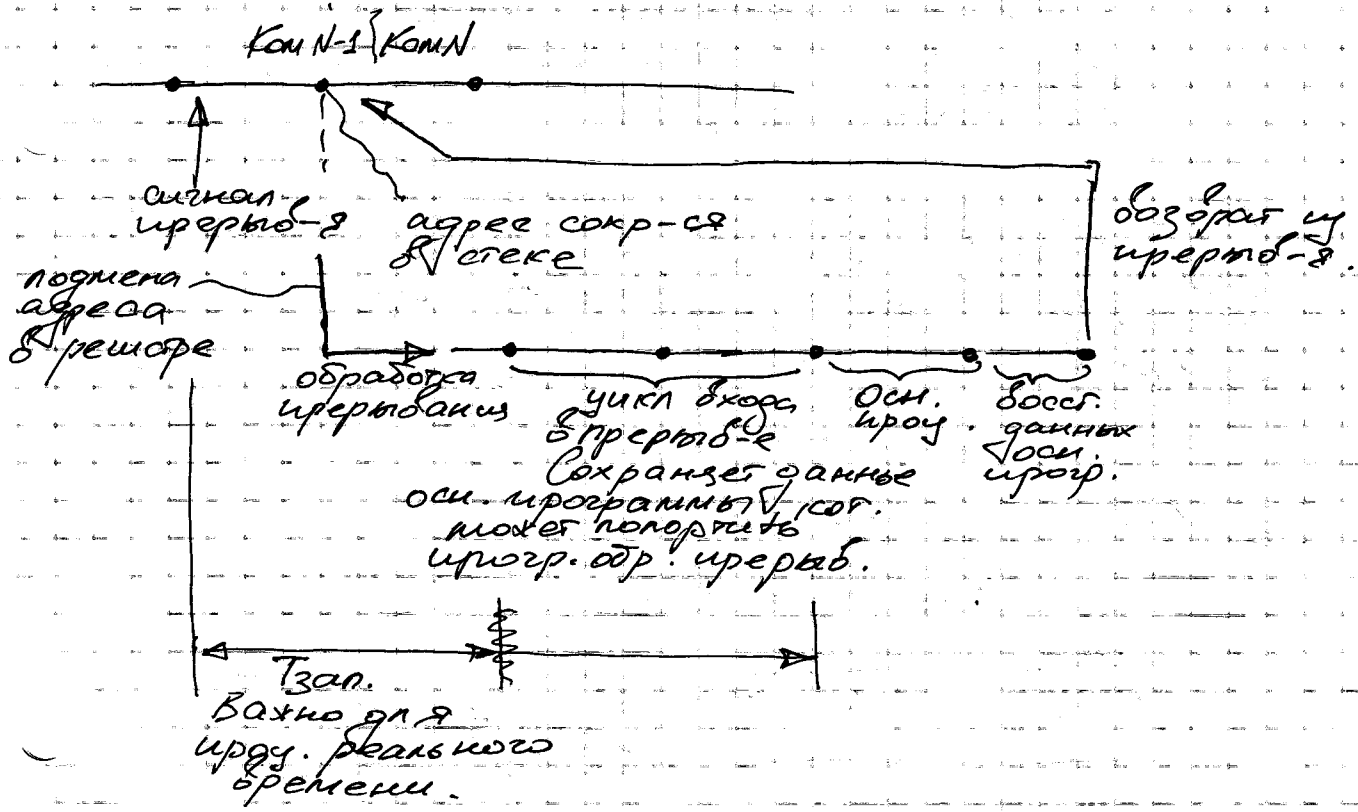 Ком N-1 } Ком N
сигнал
прерыв-я
адрес сохр-ся
в стеке
возврат из
прерыв-я.
подмена
адреса
в регистре
обработка
прерывания
цикл входа
в прерыв-е
Сохраняет данные
осн. программы, кот.
может попортить
прогр. обр. прерыв.
осн.
проц.
восст.
данных
осн.
прогр.
Tзап.
Важно для
проц. реального
времени.